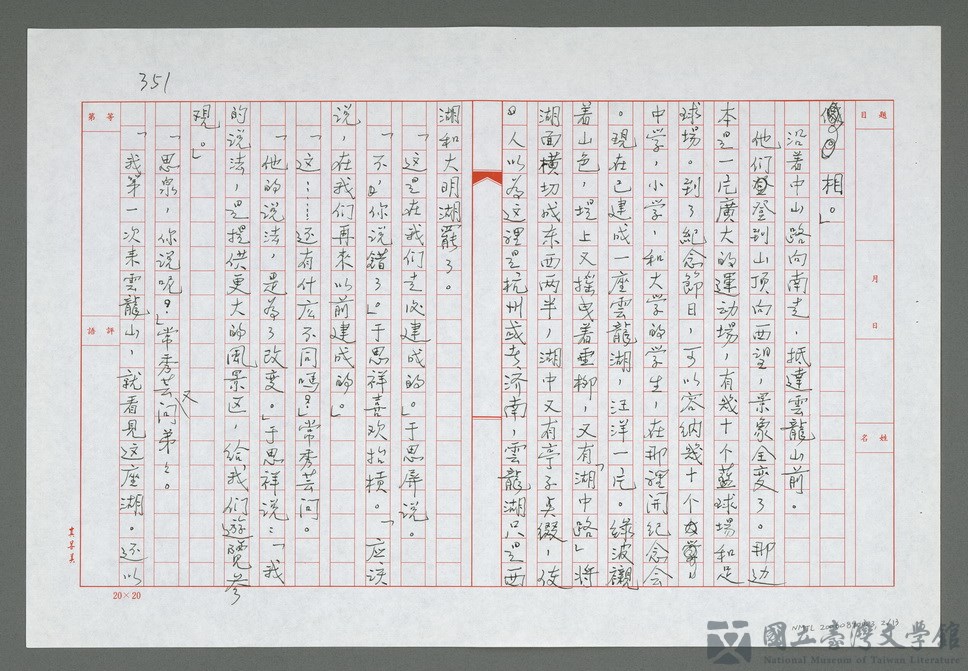 351
題目
月
日
姓名
相。」
沿着中山路向南走，抵達雲龍山前。
他们登到山頂向西望，景象全変了。那边
本是一片廣大的運动場，有幾十个蓝球場和足
球場。到了紀念節日，可以容纳幾十个
中学，小学，和大学的学生，在那裡開紀念会
。現在已建成一座雲龍湖，汪洋一片。绿波襯
着山色，堤上又摇曳着垂柳，又有「湖中路」将
湖面横切成东西两半，湖中又有亭子点缀，使
人以為这裡是杭州或者济南，雲龍湖只是西
湖和大明湖罷了。
「这是在我们走後建成的。」于思屏说。
「不，你说错了。」于思祥喜欢抬槓。「应该
说，在我们再來以前建成的。」
「这……还有什広不同嗎？」常秀芸问。
「他的说法，是為了改变。」于思祥说：「我
的说法，是提供更大的風景区，给我们遊覽参
观。」
「思泉，你说呢？」常秀芸又问弟弟。
「我第一次来雲龍山，就看見这座湖。还以
等第
評語
20×20
國立臺灣文學館
National Museum of Taiwan Literature